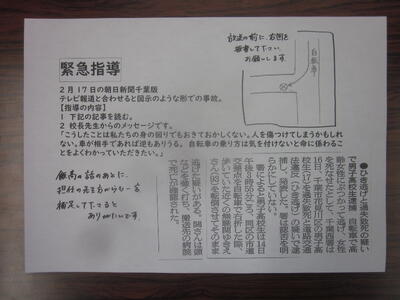 放送の前に、右図を
板書して下さい。
お願いします。
自転車
緊急指導
2月17日の朝日新聞千葉版
テレビ報道と合わせると図示のような形での事故。
【指導の内容】
1 下記の記事を読む。
2 校長先生からのメッセージです。
「こうしたことは私たちの身の回りでもおきておかしくない。人を傷つけてしまうかもしれ
ない。車が相手であれば逆もありうる。自転車の乗り方は気を付けないと命に係わるこ
とをよくわかっていただきたい。」
放送の話のあとに、
担任の先生方からも一言
補足して下さると
ありがたいです。
●ひき逃げと過失致死の疑い
で男子高校生逮捕 自転車で高
齢女性にぶつかって逃げ、女性
を死なせたとして、千葉西署は
16日、千葉市花見川区の男子高
校生を過失致死と道路交通
法違反(ひき逃げ)の疑いで逮
捕し、発表した。署は認否を明
らかにしていない。
署によると男子高校生は14日
午後3時50分ごろ、同区の市道
交差点を自転車で右折した際、
歩いていた近くの無職関ゆきえ
さん(93)を転倒させてそのまま
逃げた疑いがある。関さんは頭
などを強く打ち、搬送先の病院
で死亡が確認された。